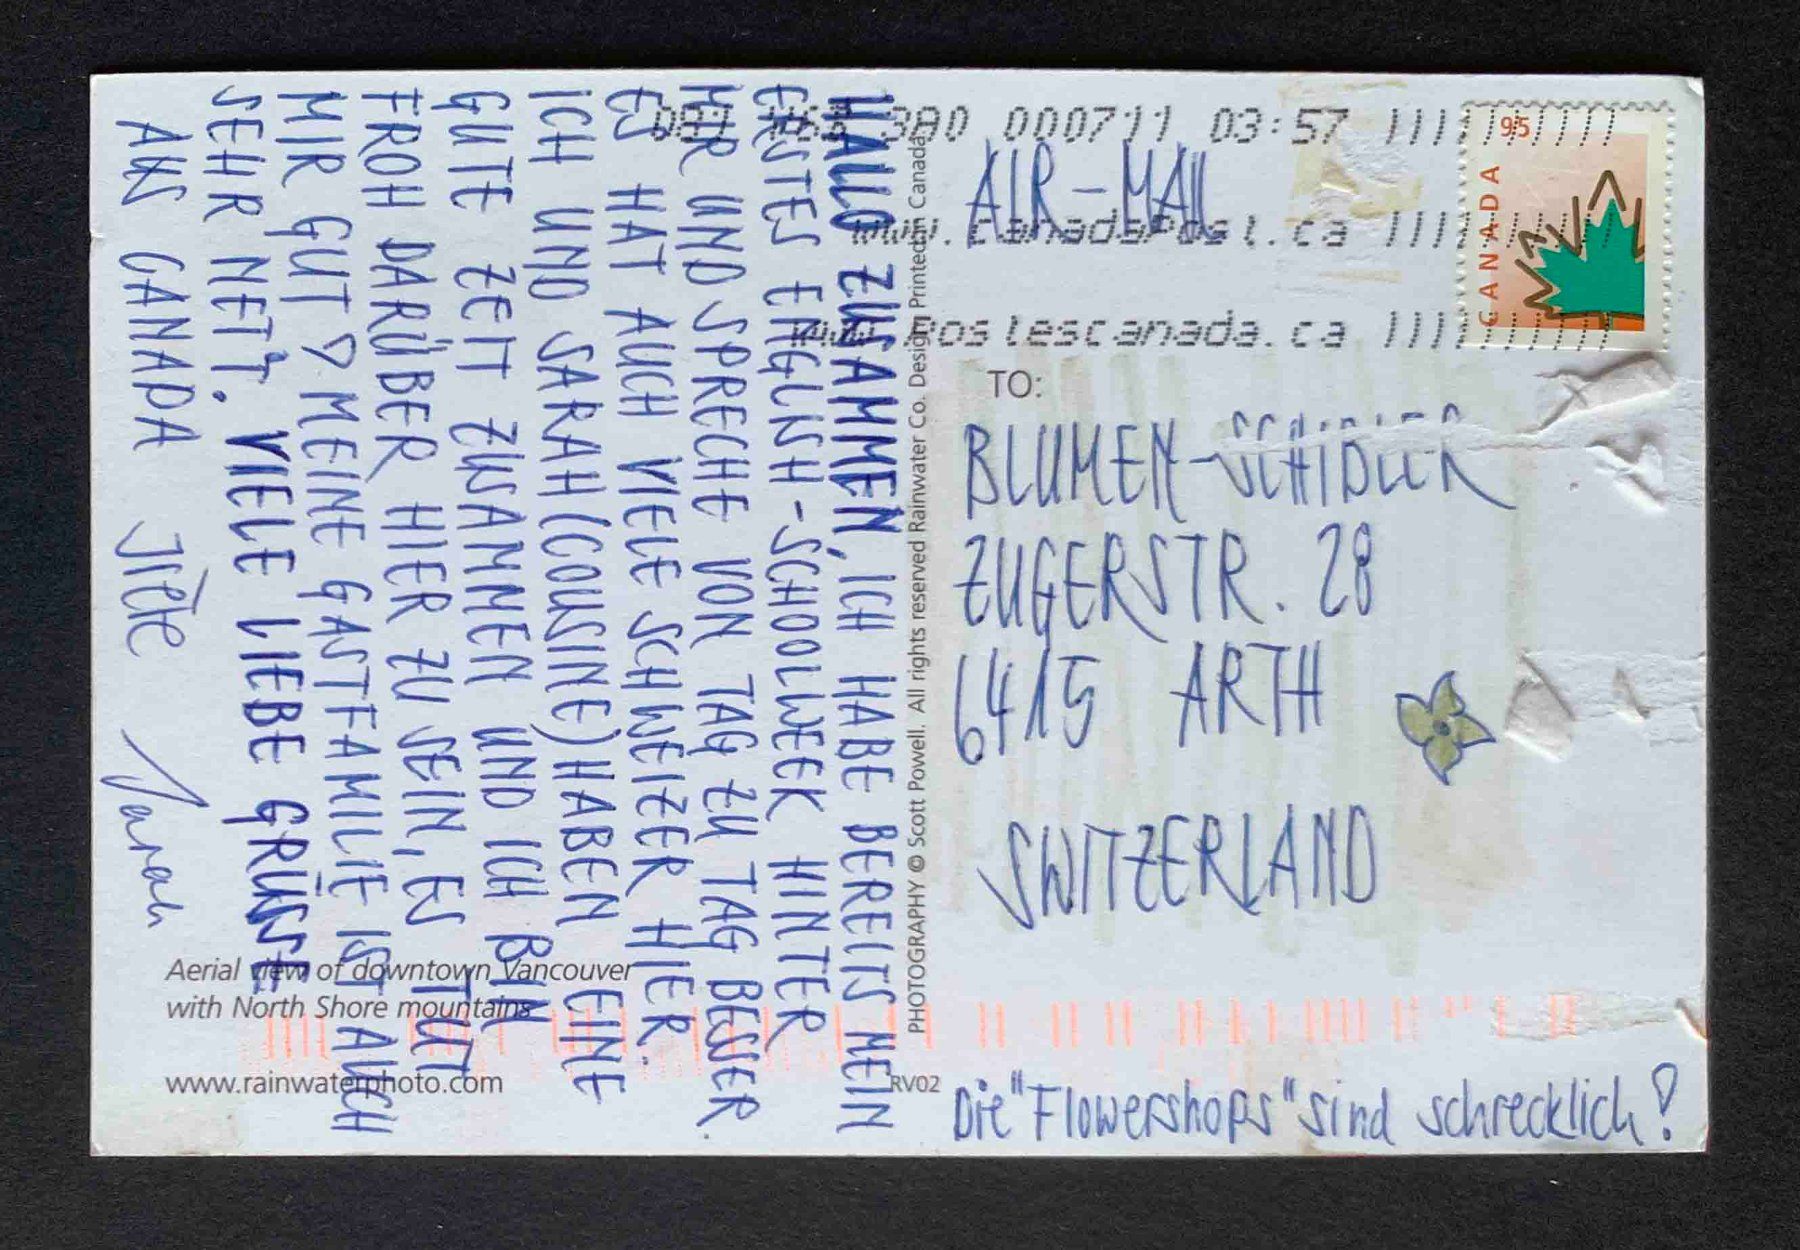 HALLO ZUSAMMEN, ICH HABE BEREITS MEIN
ERSTES ENGLISH-SCHOOLWEEK HINTER
MIR UND SPRECHE VON TAG ZU TAG BESSER.
ES HAT AUCH VIELE SCHWEIZER HIER.
ICH UND SARAH (COUSINE) HABEN EINE
GUTE ZEIT ZUSAMMEN UND ICH BIN
FROH DARÜBER HIER ZU SEIN, ES TUT
MIR GUT ♡ MEINE GASTFAMILIE IST AUCH
SEHR NETT. VIELE LIEBE GRÜSSE
AUS CANADA Sarah
Aerial view of downtown Vancouver
with North Shore mountains
www.rainwaterphoto.com
RV02
PHOTOGRAPHY © Scott Powell. All rights reserved Rainwater Co. Design Printed in Canada
380 000711 03:57
www.canadaPost.ca
www.Postescanada.ca
CANADA 95
AIR-MAIL
TO:
BLUMEN-SCHIDLER
ZUGERSTR. 28
6415 ARTH
SWITZERLAND
Die "Flowershops" sind schrecklich!